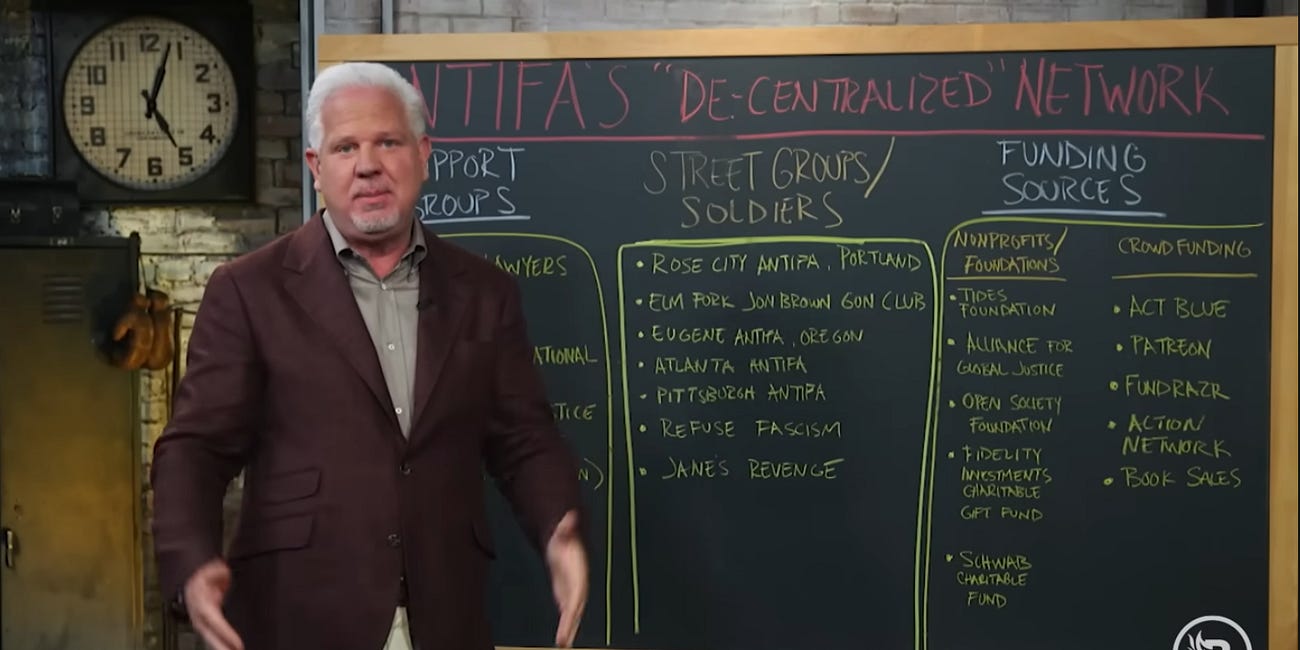 NTIFA'S "DE-CENTRALIZED" NETWORK
PPORT
ROUPS
AWYERS
ATIONAL
TICE
N)
STREET GROUPS/
SOLDIERS
• ROSE CITY ANTIFA, PORTLAND
• ELM FORK JON BROWN GUN CLUB
• EUGENE ANTIFA, OREGON
• ATLANTA ANTIFA
• PITTSBURGH ANTIFA
• REFUSE FASCISM
• JANE'S REVENGE
FUNDING
SOURCES
NONPROFITS/
FOUNDATIONS
• TIDES
FOUNDATION
• ALLIANCE FOR
GLOBAL JUSTICE
• OPEN SOCIETY
FOUNDATION
• FIDELITY
INVESTMENTS
CHARITABLE
GIFT FUND
• SCHWAB
CHARITABLE
FUND
CROWDFUNDING
• ACT BLUE
• PATREON
• FUNDRAZR
• ACTION
NETWORK
• BOOK SALES
11 12
10 2
9 3
8 4
7 6 5